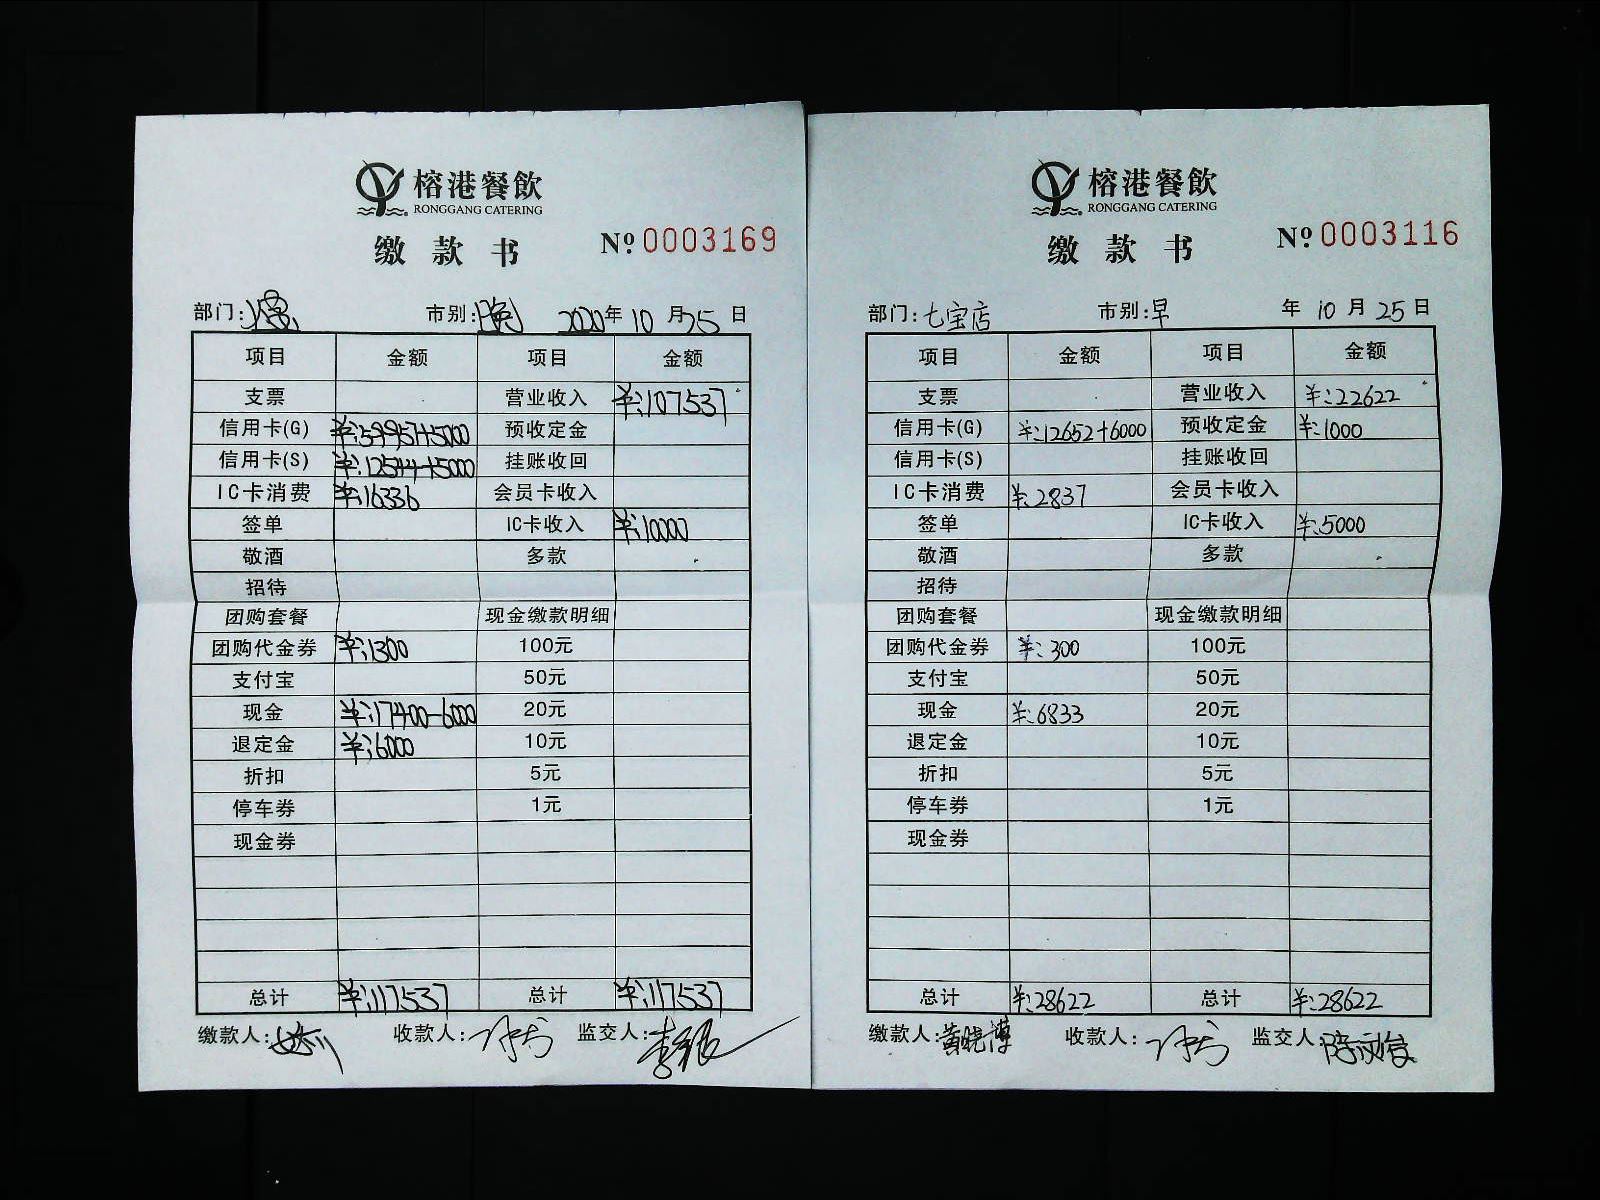 榕港餐飲
RONGGANG CATERING
缴款书 Nº 0003169
部门: 市别: 2020年10月25日
项目 金额 项目 金额
支票 营业收入 ¥:107537
信用卡(G) ¥:59957+5000 预收定金
信用卡(S) ¥:12544+5000 挂账收回
IC卡消费 ¥:16336 会员卡收入
签单 IC卡收入 ¥:10000
敬酒 多款
招待
团购套餐 现金缴款明细
团购代金券 ¥:1300 100元
支付宝 50元
现金 ¥:17400-6000 20元
退定金 ¥:6000 10元
折扣 5元
停车券 1元
现金券
总计 ¥:117537 总计 ¥:117537
缴款人: 收款人: 监交人:
榕港餐飲
RONGGANG CATERING
缴款书 Nº 0003116
部门:七宝店 市别:早 年10月25日
项目 金额 项目 金额
支票 营业收入 ¥:22622
信用卡(G) ¥:12652+6000 预收定金 ¥:1000
信用卡(S) 挂账收回
IC卡消费 ¥:2837 会员卡收入
签单 IC卡收入 ¥:5000
敬酒 多款
招待
团购套餐 现金缴款明细
团购代金券 ¥:300 100元
支付宝 50元
现金 ¥:6833 20元
退定金 10元
折扣 5元
停车券 1元
现金券
总计 ¥:28622 总计 ¥:28622
缴款人:黄晓博 收款人: 监交人: